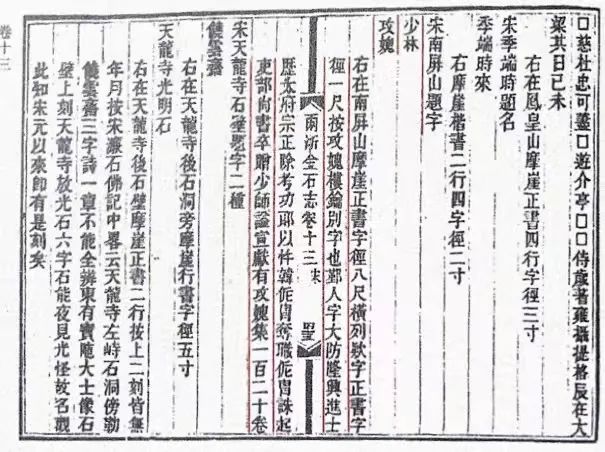 □慈杜忠可盡□遊介亭□□侍歲著雍攝提格辰在大
梁其日己未
右在鳳皇山摩崖正書四行字徑三寸
宋季端時題名
季端時來
右摩崖楷書二行四字徑二寸
宋南屏山題字
少林
攻媿
右在南屏山摩崖正書字徑八尺橫列欵字正書字
徑一尺按攻媿樓鑰別字也鄞人字大防隆興進士
兩浙金石志卷十三 宋
歷太府宗正除考功郎以忤韓侂冑奪職侂冑誅起
吏部尚書卒贈少師諡宣獻有攻媿集一百二十卷
宋天龍寺石壁題字二種
饒雲齋
右在天龍寺後石洞旁摩崖行書字徑五寸
天龍寺光明石
右在天龍寺後石壁摩崖正書二行按上二刻皆無
年月按宋巖石佛記中畧云天龍寺左峙石洞傍勒
饒雲齋三字詩一章不能全辨東有寶陁大士像石
壁上刻天龍寺放光石六字石能夜見光怪故名觀
此知宋元以來卽有是刻矣
卷十三